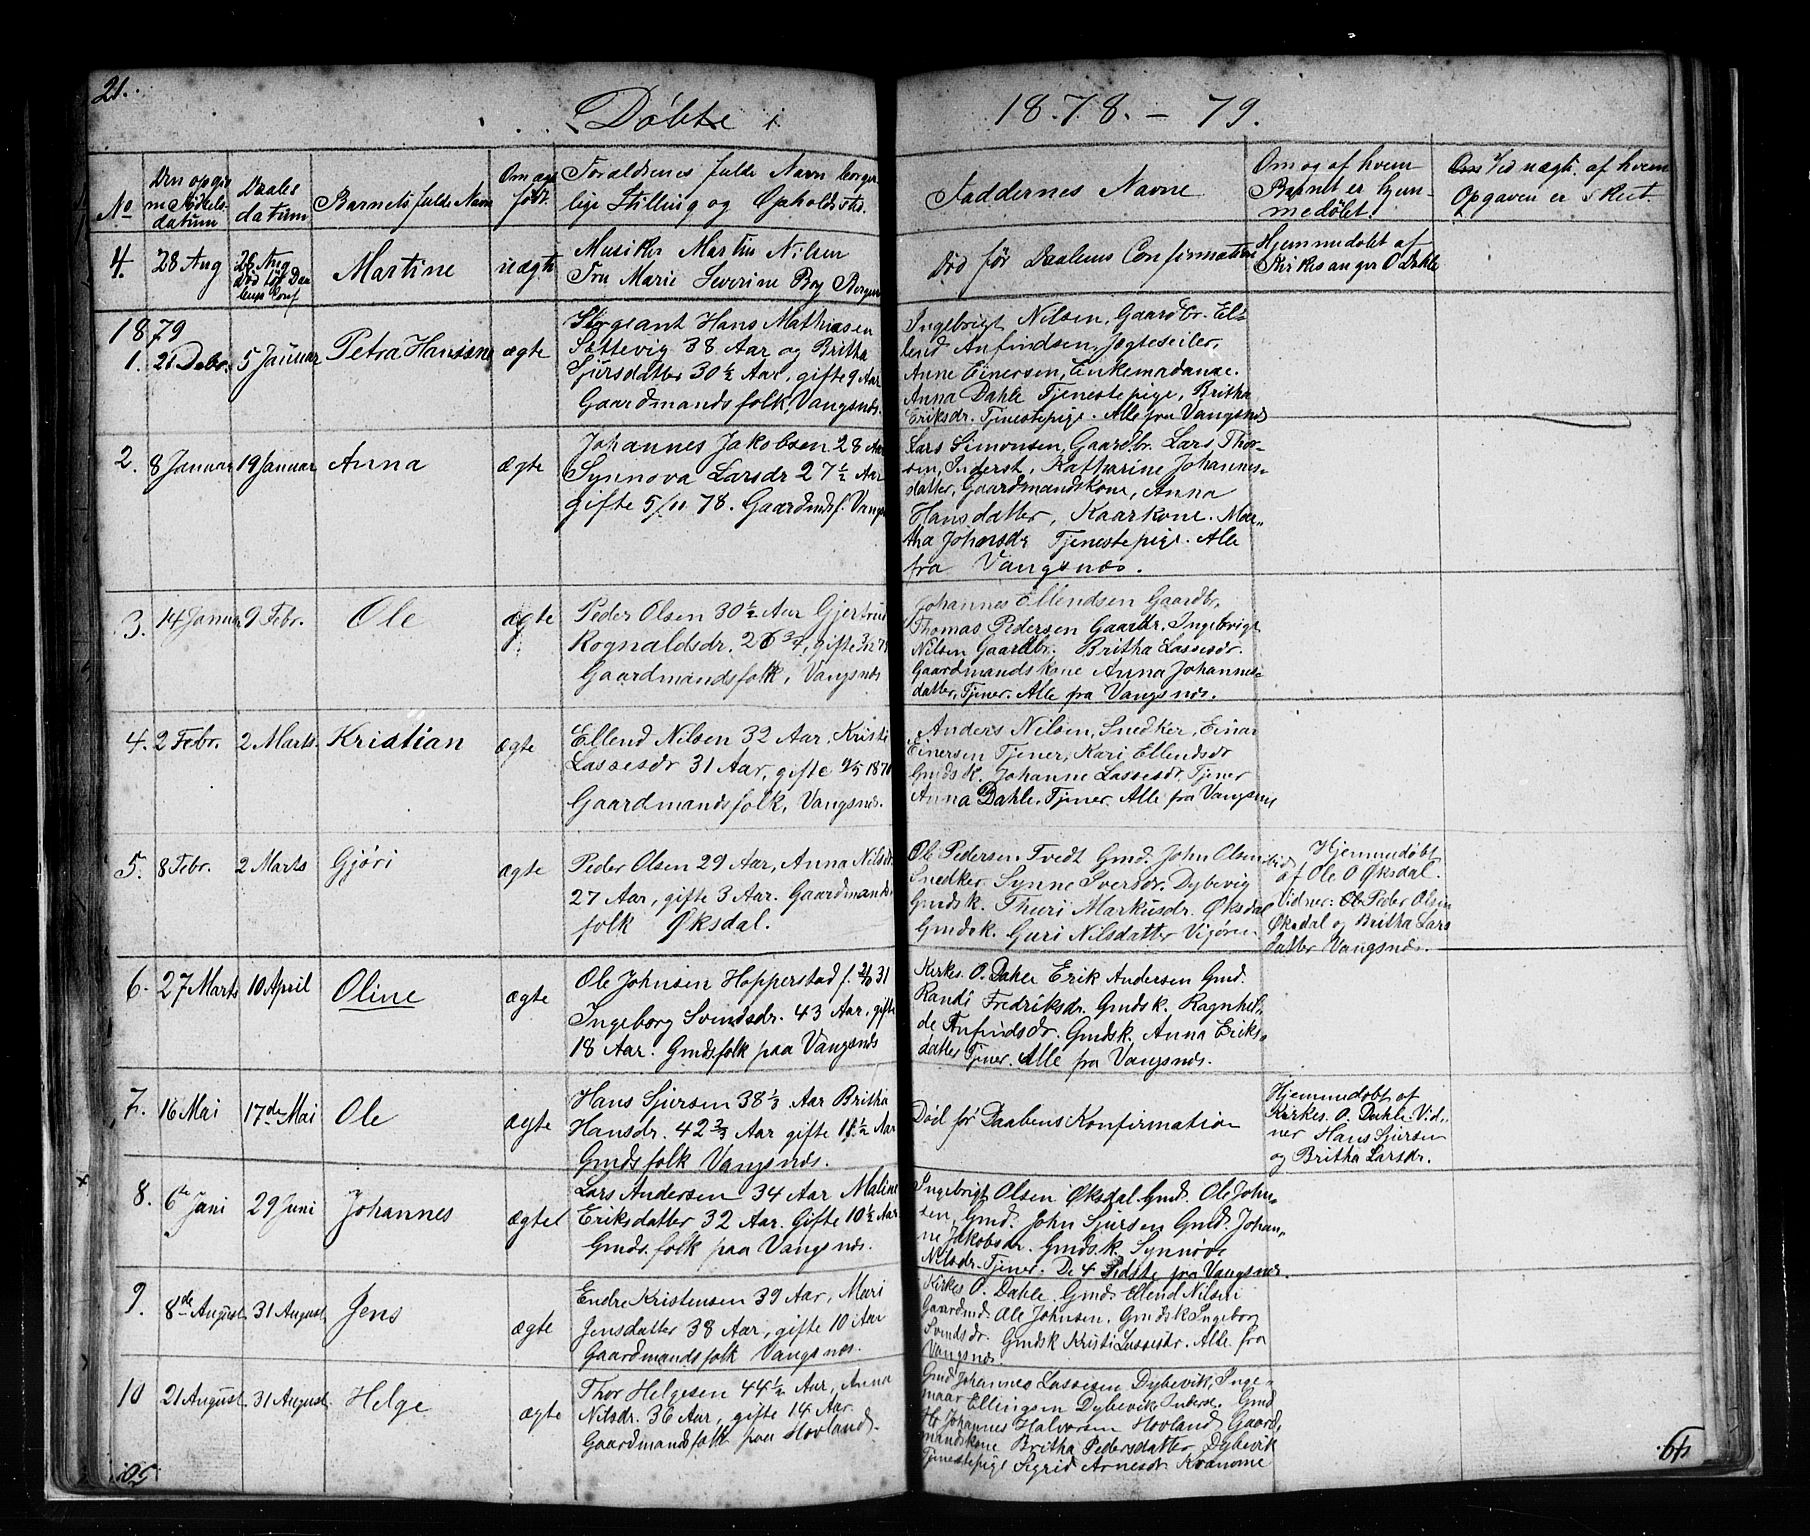 21.
Døbte i 1878. – 79.
No
Den opgiv
ne Fødsels-
datum
Daabs
datum
Barnets fulde Navn
Om ægte
født.
Forældrenes fulde Navn borger-
lige Stilling og Opholdsted.
Faddernes Navne
Om og af hvem
Barnet er hjem-
medøbt.
Ved uægt. af hvem
Opgaven er skeet.
4.
28 Aug
28 Aug
Død før Daa
bens Conf
Martine
uægte
Musiker Martin Nilsen
Fru Marie Severine Boy Bergen
Død før Daabens Confirmation
Hjemmedøbt af
Kirkesanger O Dahle
1879
1.
21 Debr.
5 Januar
Petra Hansine
ægte
Sergeant Hans Mathiasen
Sættevig 38 Aar og Britha
Sjursdatter 30 1/2 Aar, gifte 9 Aar
Gaardmandsfolk, Vangsnæs.
Ingebrigt Nilsen, Gaardbr. El-
lend Anfindsen, Jægteseiler,
Anne Einersen, Enkemadame.
Anna Dahle Tjenestepige, Britha
Eriksdr. Tjenestepige. Alle fra Vangsnæs
2.
8 Januar
19 Januar
Anna
ægte
Johannes Jakobsen 28 Aar
Synnøva Larsdr 27 1/2 Aar
gifte 5/11 78. Gaardmdsf. Vangs
Lars Simonsen, Gaardbr. Lars Thor-
sen, Inderst, Katharine Johannes-
datter, Gaardmandskone, Anna
Hansdatter, Kaarkone. Mar-
tha Johansdr Tjenestepige. Alle
fra Vangsnæs.
3.
14 Januar
9 Febr.
Ole
ægte
Peder Olsen 30 1/2 Aar Gjertrud
Rognaldsdr. 26 3/4, gifte
Gaardmandsfolk, Vangsnæs
Johannes Ellendsen Gaardbr.
Thomas Pedersen Gaardbr. Ingebrigt
Nilsen Gaardbr. Britha Lassesdr.
Gaardmandskone Anna Johannes-
datter, Tjener. Alle fra Vangsnæs.
4.
2 Febr.
2 Marts.
Kristian
ægte
Ellend Nilsen 32 Aar, Kristi
Lassesdr 31 Aar, gifte 9/5 1870
Gaardmandsfolk, Vangsnæs.
Anders Nilsen, Snedker, Einar
Einersen Tjener, Kari Ellendsdr
Gmdsk. Johanne Lassesdr. Tjener
Anna Dahle, Tjener. Alle fra Vangsnæs
5.
8 Febr.
2 Marts
Gjøri
ægte
Peder Olsen 29 Aar, Anna Nilsdr.
27 Aar, gifte 3 Aar. Gaardmands-
folk Øksdal.
Ole Pedersen Tvedt Gmd. John Olsen
Snedker. Synne Iversdr. Dybevig
Gmdsk. Thuri Markusdr. Øksdal
Gmdsk. Guri Nilsdatter Vigøren
Hjemmedøbt
af Ole O Øksdal.
Vidner: Peder Olsen
Øksdal og Britha Lars
datter Vangsnæs.
6.
27 Marts
10 April
Oline
ægte
Ole Johnsen Hopperstad f. 31
Ingeborg Svendsdr. 43 Aar, gifte
18 Aar. Gmdsfolk paa Vangsnæs
Kirkes. O. Dahle Erik Andersen Gmd.
Randi Fredriksdr. Gmdsk. Ragnhil-
de Anfindsdr. Gmdsk. Anna Eriks-
datter Tjener. Alle fra Vangsnæs.
7.
16 Mai
17de Mai
Ole
ægte
Hans Sjursen 38 1/3 Aar Britha
Hansdr. 42 2/3 Aar gifte 11 1/2 Aar
Gmdsfolk Vangsnæs.
Død før Daabens Konfirmation
Hjemmedøbt af
Kirkes. O. Dahle. Vid-
ner Hans Sjursen
og Britha Larsdr.
8.
6te Juni
29 Juni
Johannes
ægte
Lars Andersen 34 Aar Maline
Eriksdatter 32 Aar. Gifte 10 1/2 Aar
Gmdsfolk paa Vangsnæs.
Ingebrigt Olsen Øksdal Gmd. Ole John-
sen, Gmd. John Sjursen Gmd. Johan-
ne Jakobsdr. Gmdsk. Synnøve
Nilsdr. Tjener. De 4 sidste fra Vangsnæs.
9.
8de August
31 August
Jens
ægte
Endre Kristensen 39 Aar, Mari
Jensdatter 38 Aar, gifte 10 Aar
Gaardmandsfolk Vangsnæs.
Kirkes O. Dahle. Gmds Ellend Nilsen
Gaardmd. Ole Johnsen. Gmdsk Ingeborg
Svendsdr. Gmdsk Kristi Lassesdr. Alle fra
Vangsnæs.
10
21 August
31 August
Helge
ægte
Thor Helgesen 44 1/2 Aar, Anna
Nilsdr. 36 Aar, gifte 14 Aar.
Gaardmandsfolk paa Hovland.
Gmd Johannes Lassesen Dybevik, Inge-
maar Ellingsen Dybevik Inderst. Gmd
Johannes Halvorsen Hovland, Gaard-
mandskone Britha Pedersdatter, Dybevik
Tjenestepige Sigrid Arnesdr. Kvamme